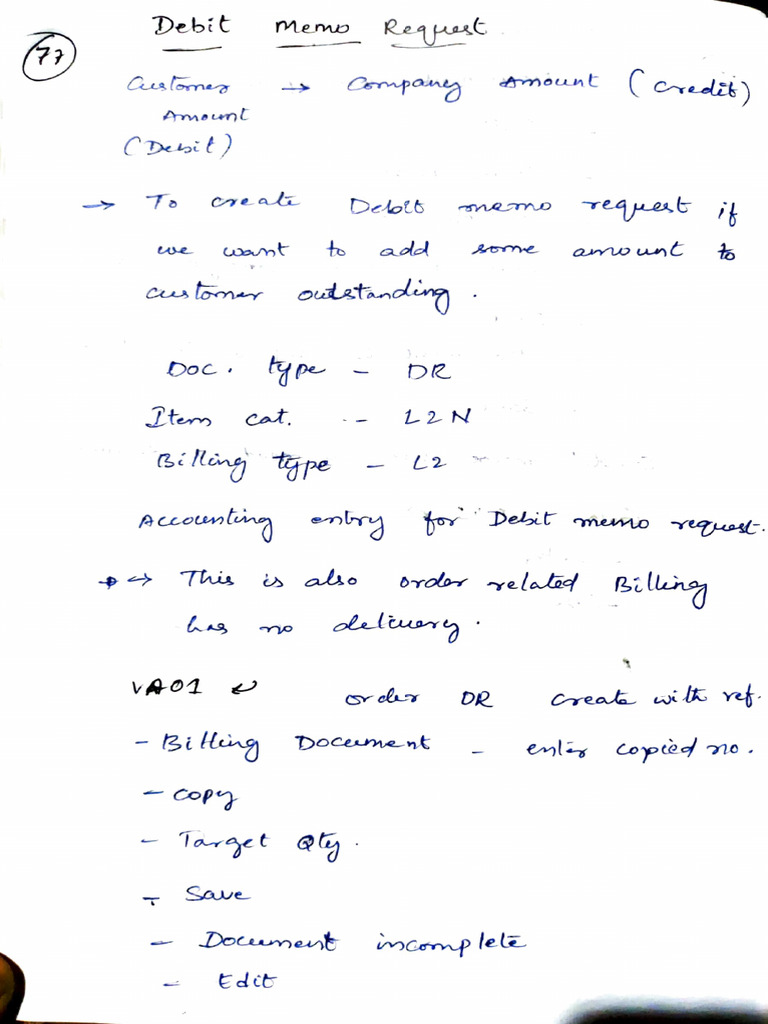 Debit Memo Request
77
Customer → Company Amount (Credit)
Amount
(Debit)
→ To create Debit memo request if
we want to add some amount to
customer outstanding.
Doc. type - DR
Item cat. - L2N
Billing type - L2
Accounting entry for Debit memo request.
↔ This is also order related Billing
has no delivery.
VA01 ↵ order DR create with ref.
- Billing Document - enter copied no.
- copy
- Target Qty.
- Save
- Document incomplete
- Edit